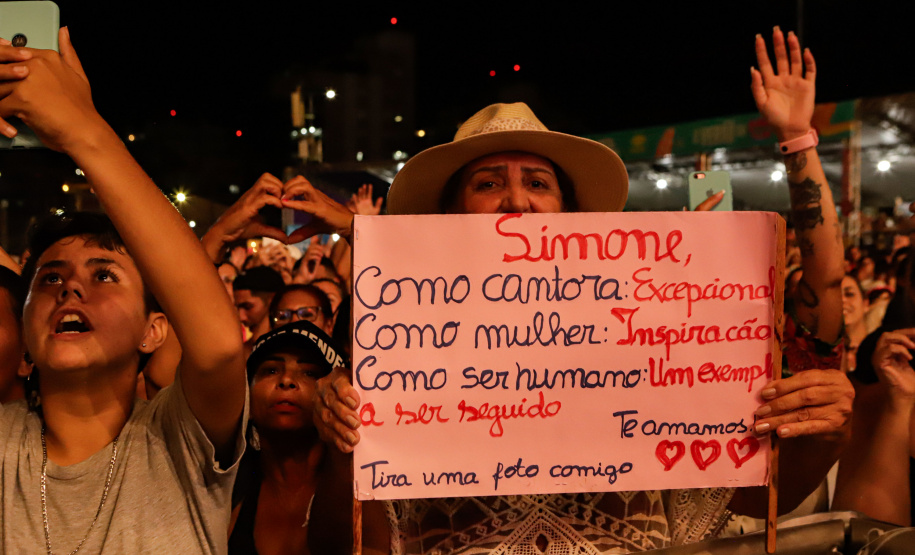 Simone,
Como cantora: Excepcional
Como mulher: Inspiração
Como ser humano: Um exempl
a ser seguido
Te amamos.
Tira uma foto comigo